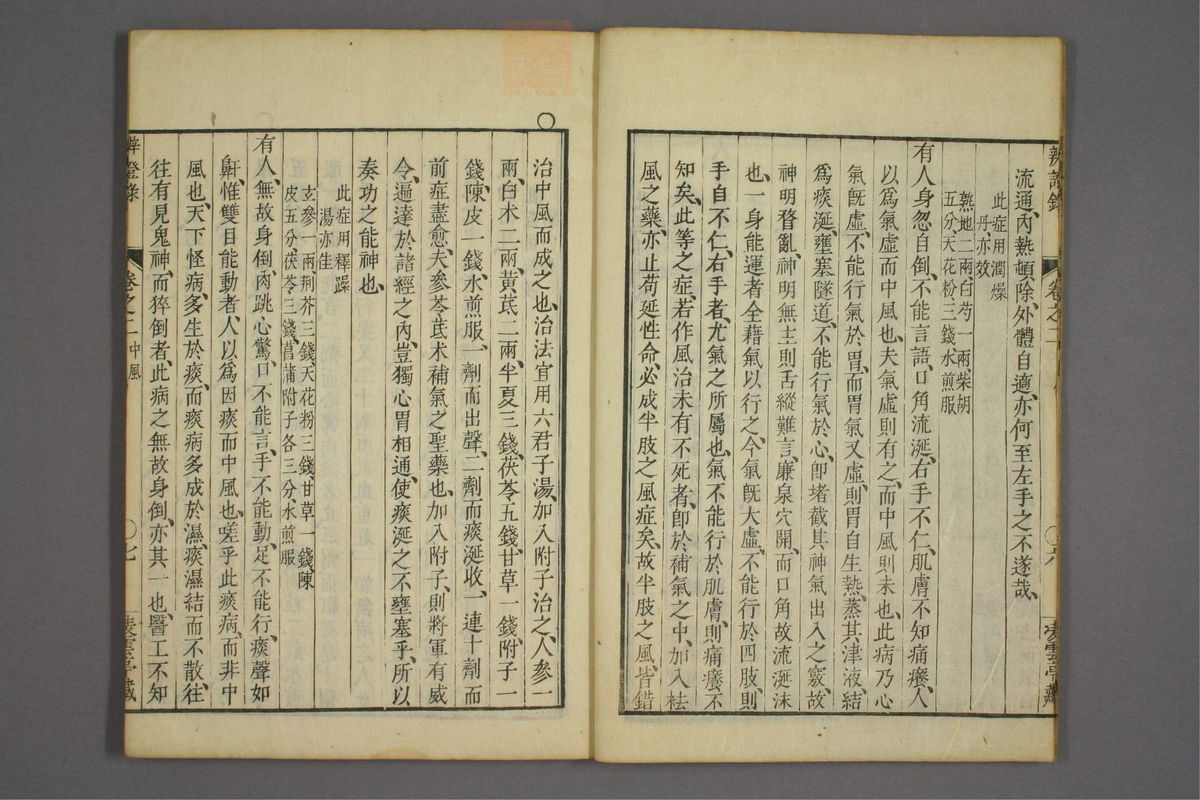 流通、內熱頓除、外體自適、亦何至左手之不遂哉、
此症用潤燥
丹、亦效
熟地二兩、白芍一兩、柴胡
五分、天花粉三錢、水煎服
有人身忽自倒、不能言語、口角流涎、右手不仁、肌膚不知痛癢、人
以爲氣虛而中風也、夫氣虛則有之、而中風則未也、此病乃心
氣旣虛、不能行氣於胃、而胃氣又虛、則胃自生熱、蒸其津液、結
爲痰涎、壅塞隧道、不能行氣於心、卽堵截其神氣出入之竅、故
神明瞀亂、神明無主、則舌縱難言、廉泉穴開、而口角故流涎沫
也、一身能運者、全藉氣以行之、今氣旣大虛、不能行於四肢、則
手自不仁、右手者、尤氣之所屬也、氣不能行於肌膚、則痛癢不
知矣、此等之症、若作風治、未有不死者、卽於補氣之中、加入祛
風之藥、亦止苟延性命、必成半肢之風症矣、故半肢之風、皆錯
治中風而成之也、治法宜用六君子湯、加入附子治之、人參一
兩、白术二兩、黃茋二兩、半夏三錢、茯苓五錢、甘草一錢、附子一
錢、陳皮一錢、水煎服、一劑而出聲、二劑而痰涎收、一連十劑而
前症盡愈、夫參苓茋术、補氣之聖藥也、加入附子、則將軍有威
令、遍達於諸經之內、豈獨心胃相通、使痰涎之不壅塞乎、所以
奏功之能神也、
此症用釋躁
湯亦佳
玄參一兩、荆芥三錢、天花粉三錢、甘草一錢、陳
皮五分、茯苓三錢、菖蒲附子各三分、水煎服
有人無故身倒、肉跳心驚、口不能言、手不能動、足不能行、痰聲如
鼾、惟雙目能動者、人以爲因痰而中風也、嗟乎此痰病、而非中
風也、天下怪病、多生於痰、而痰病多成於濕、痰濕結而不散、往
往有見鬼神、而猝倒者、此病之無故身倒、亦其一也、醫工不知
卷之二 中風
〇七
凌雲亭藏